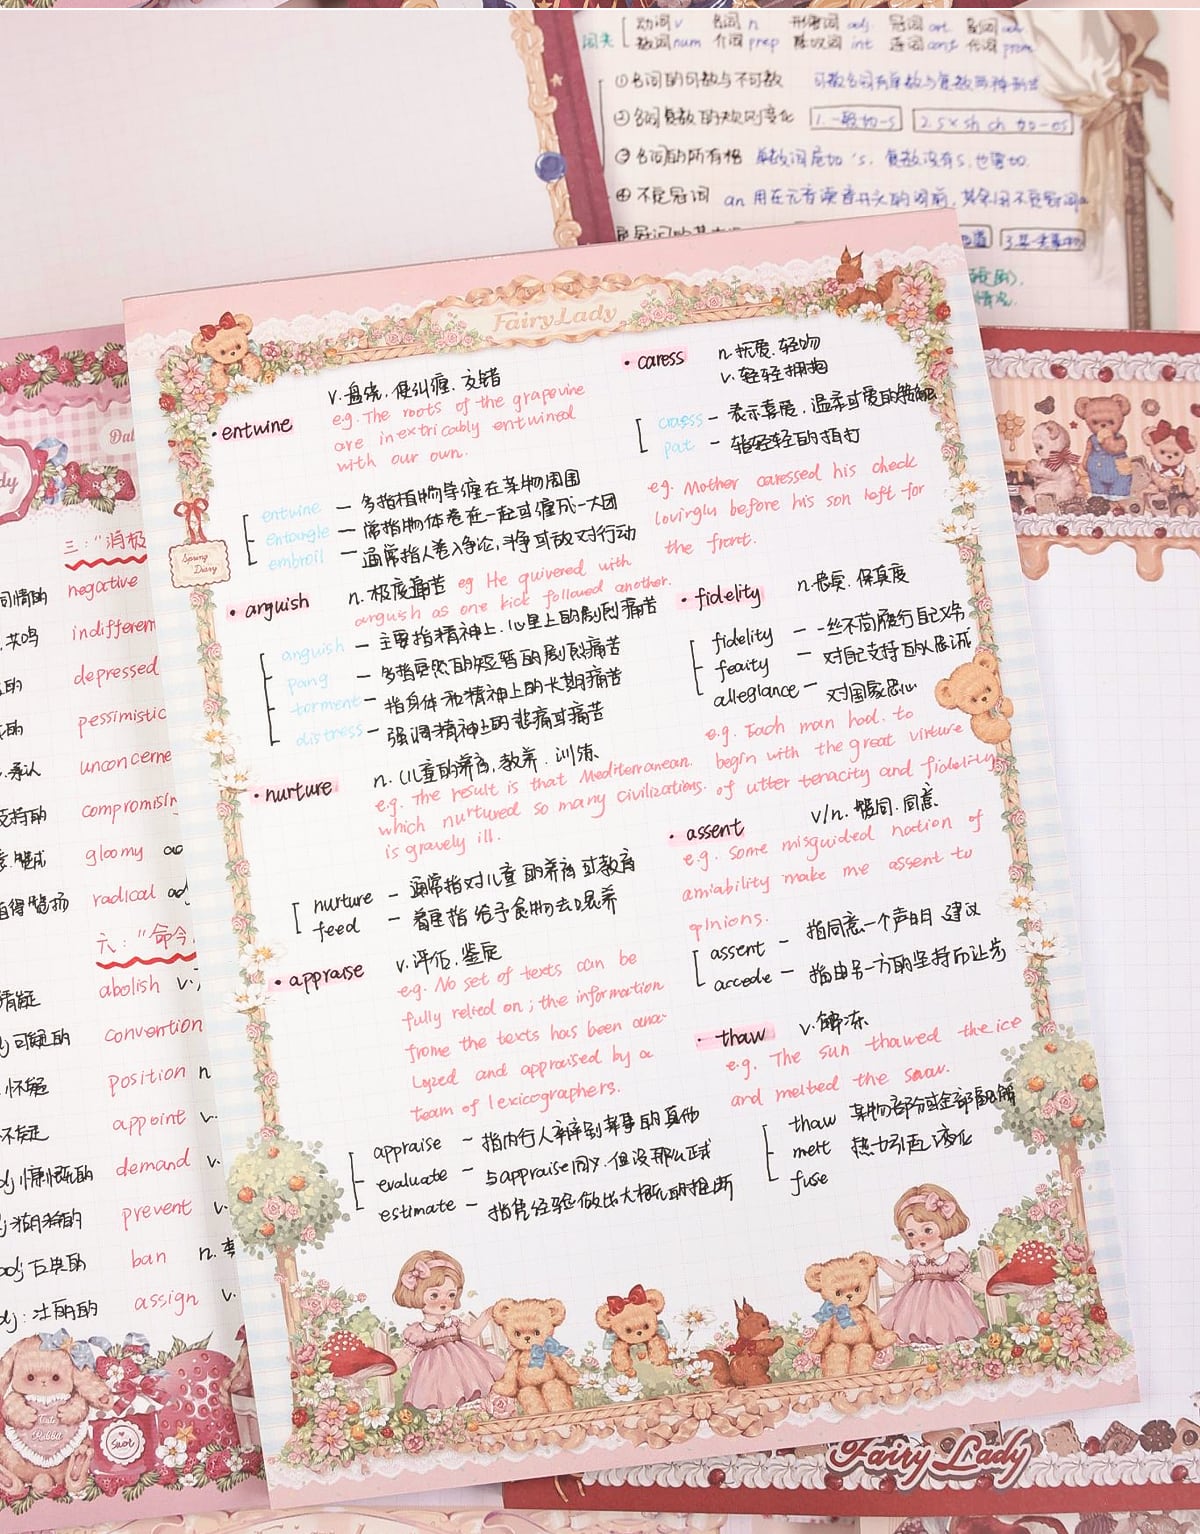 动词v 名词n 形容词adj. 冠词art. 副词adv
词类 数词num 介词prep 感叹词int 连词conj 代词pron
①名词的可数与不可数 可数名词有单数与复数两种形式
②名词复数的规则变化 1.一般加-s 2.s x sh ch 加-es
③名词的所有格 单数词尾加's. 复数没有s,也要加
④不定冠词 an 用在元音读音开头的词前,其余用不定冠词a
FairyLady
Spring
Diary
• entwine
v.盘绕.使纠缠.交错
e.g. The roots of the grapevine
are inextricably entwined
with our own.
entwine — 多指植物等缠在某物周围
entangle — 常指物体卷在一起或缠成一大团
embroil — 通常指人卷入争论,斗争或敌对行动
• anguish n.极度痛苦 eg He quivered with
anguish as one kick followed another.
anguish — 主要指精神上.心里上的剧烈痛苦
pang — 多指突然的短暂的剧烈痛苦
torment — 指身体和精神上的长期痛苦
distress — 强调精神上的悲痛或痛苦
• nurture
n.儿童的养育,教养.训练
e.g. The result is that Mediterranean.
which nurtured so many civilizations.
is gravely ill.
nurture — 通常指对儿童的养育或教育
feed — 着重指给予食物去喂养
• appraise
v.评估.鉴定
e.g. No set of texts can be
fully relied on; the information
frome the texts has been ana-
lyzed and appraised by a
team of lexicographers.
appraise — 指内行人辛辛别某事的真伪
evaluate — 与appraise同义.但没那么正式
estimate — 指凭经验做出大概的推断
• caress n.抚爱.轻吻
v.轻轻拥抱
caress — 表示喜爱.温柔可爱的
pat — 指轻轻的拍打
eg. Mother caressed his cheek
lovingly before his son left for
the front.
• fidelity n.忠实.保真度
fidelity — 一丝不苟履行自己义务
feaity — 对自己支持的人忠诚
alleglance — 对国家忠心
e.g. Each man had. to
begin with the great virture
of utter tenacity and fidelity
• assent v/n.赞同.同意
e.g. Some misguided notion of
amiability make me assent to
opinions.
assent — 指同意一个声明.建议
accede — 指由另一方的坚持而让步
• thaw v.解冻
e.g. The sun thawed the ice
and melted the snow.
thaw 某物部分或全部融解
melt 热力引起液化
fuse
三:"消极
negative
indifferen
depressed
pessimistic
unconcerne
compromisin
gloomy
radical adj
六:"命令
abolish v.
convention
position n
appoint v.
demand v.
prevent v.
ban n.
assign v.
同情的
共鸣
承认
支持的
值得赞扬
可疑的
怀疑
adj 慷慨的
adj 古典的
adj: 壮丽的
Fairy Lady